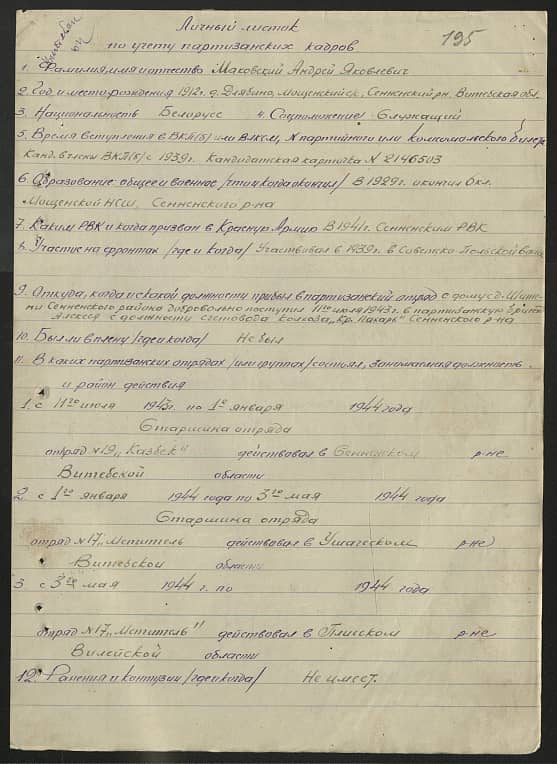 Личный листок
195
по учету партизанских кадров
1. Фамилия имя и отчество Маковский Андрей Яковлевич
2. Год и место рождения 1912 г. д. Мощенский с/с, Сенненский рн. Витебская обл.
3. Национальность Белорус 4. Соцположение Служащий
5. Время вступления в ВКП(б) или ВЛКСМ, № партийного или комсомольского билета
Канд. в члены ВКП(б) с 1939 г. Кандидатская карточка № 2146503
6. Образование: общее и военное /что и когда окончил/ В 1929 г. окончил 6 кл.
Мощенской НСШ, Сенненского р-на
7. Каким РВК и когда призван в Красную Армию В 1941 г. Сенненским РВК
8. Участие на фронтах /где и когда/ Участвовал в 1939 г. в Советско-Польской войне
9. Откуда, когда и с какой должности прибыл в партизанский отряд с дому с д.
Сенненского района добровольно поступил 11го июля 1943 г. в партизанскую бригаду
Алексея с должности счетовода колхоза „Кр. Пахарь" Сенненского р-на
10. Был ли в плену /где и когда/ Не был
11. В каких партизанских отрядах /или группах/ состоял, занимаемая должность
и район действия
1. с 11го июля 1943 г. по 1е января 1944 года
Старшина отряда
отряд №19 „Казбек" действовал в Сенненском р-не
Витебской области
2 с 1го января 1944 года по 3го мая 1944 года
Старшина отряда
отряд №17 „Мститель действовал в Ушачском р-не
Витебской области
3 с 3го мая 1944 г. по 1944 года
отряд №17 „Мститель" действовал в Плисском р-не
Вилейской области
12. Ранения и контузии /где и когда/ Не имеет.